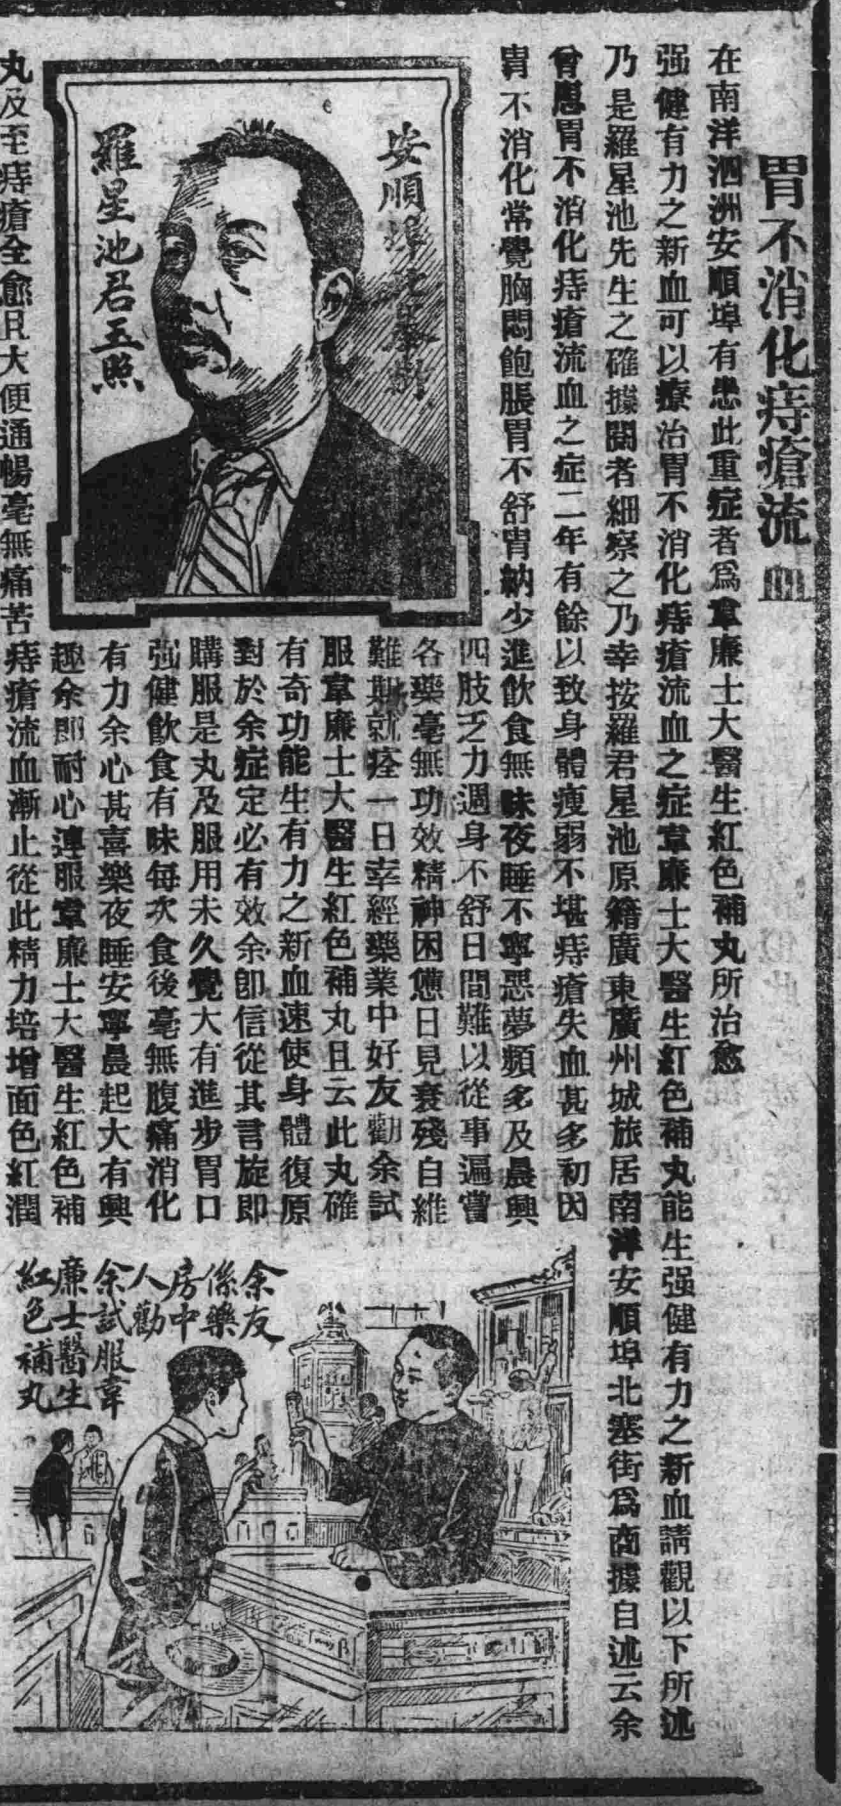 胃不消化痔瘡流血
在南洋泗洲安順埠有患此重症者爲韋廉士大醫生紅色補丸所治愈
强健有力之新血可以療治胃不消化痔瘡流血之症韋廉士大醫生紅色補丸能生强健有力之新血請觀以下所述
乃是羅星池先生之確據閱者細察之乃幸按羅君星池原籍廣東廣州城旅居南洋安順埠北塞街爲商據自述云余
曾患胃不消化痔瘡流血之症二年有餘以致身體瘦弱不堪痔瘡失血甚多初因
胃不消化常覺胸悶飽脹胃不舒胃納少進飲食無味夜睡不寧惡夢頻多及晨興
四肢乏力週身不舒日間難以從事遍嘗
各藥毫無功效精神困憊日見衰殘自維
難期就痊一日幸經藥業中好友勸余試
服韋廉士大醫生紅色補丸且云此丸確
有奇功能生有力之新血速使身體復原
對於余症定必有效余卽信從其言旋即
購服是丸及服用未久覺大有進步胃口
强健飲食有味每次食後毫無腹痛消化
有力余心甚喜樂夜睡安寧晨起大有興
趣余即耐心連服韋廉士大醫生紅色補
丸及至痔瘡全愈且大便通暢毫無痛苦痔瘡流血漸止從此精力培增面色紅潤
安順埠
羅星池君玉照
余友
係藥
房中
人勸
余試服韋
廉士醫生
紅色補丸